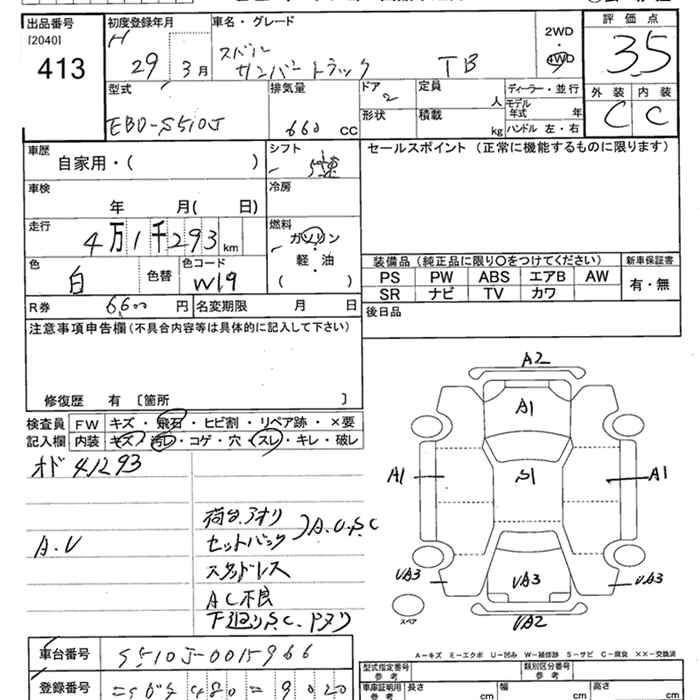 出品番号
[2040]
413
初度登録年月
H
29 3月
車名・グレード
スバル
サンバートラック TB
2WD
4WD
評価点
3.5
外装 内装
C C
型式
EBD-S510J
排気量
660 CC
ドア
2
定員
人
形状
積載
kg
ディーラー・並行
モデル年式 年
ハンドル 左・右
車歴
自家用・( )
シフト
5速
セールスポイント(正常に機能するものに限ります)
車検
年 月( 日)
冷房
走行
4万1千293 km
燃料
ガソリン
軽・油
( )
色
白
色替
色コード
W19
装備品(純正品に限り○をつけてください)
新車保証書
PS PW ABS エアB AW
SR ナビ TV カワ
有・無
R券 6,600 円
名変期限 月 日
後日品
注意事項申告欄(不具合内容等は具体的に記入して下さい)
修復歴 有 [箇所 ]
検査員
記入欄
FW キズ・飛石・ヒビ割・リペア跡・×要
内装 キズ・汚レ・コゲ・穴・スレ・キレ・破レ
オド 41293
A.U
荷台.アオリ
セットバック
A.U.S.C
スタッドレス
AC不良
A2
A1
A1
S1
A1
UA3
UA3
UA3
UA2
スペア
A-キズ ミ-エクボ U-凹み W-補修跡 S-サビ C-腐食 ××-交換済
車台番号 S510J-0015966
登録番号
型式指定番号
参考
類別区分番号
参考
車庫証明用
参考
長さ cm
幅 cm
高さ cm